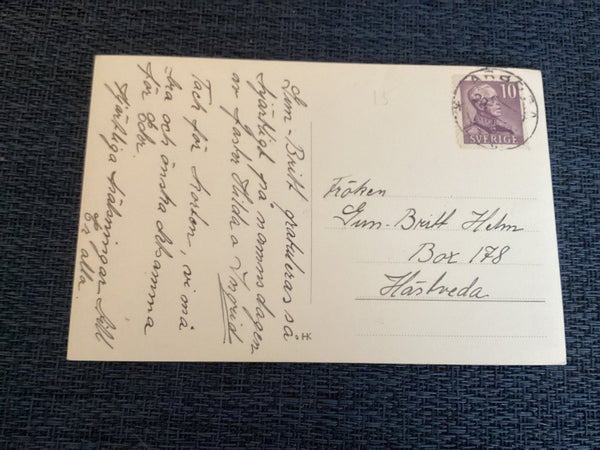 Gun-Britt gratuleras så
hjärtligt på namnsdagen
av faster Hilda o Ingrid
Tack för korten, vi må
bra och önska detsamma
för Eder.
Hjärtliga hälsningar till
Er alla.
13
10
SVERIGE
Fröken
Gun-Britt Helm
Box 178
Hästveda